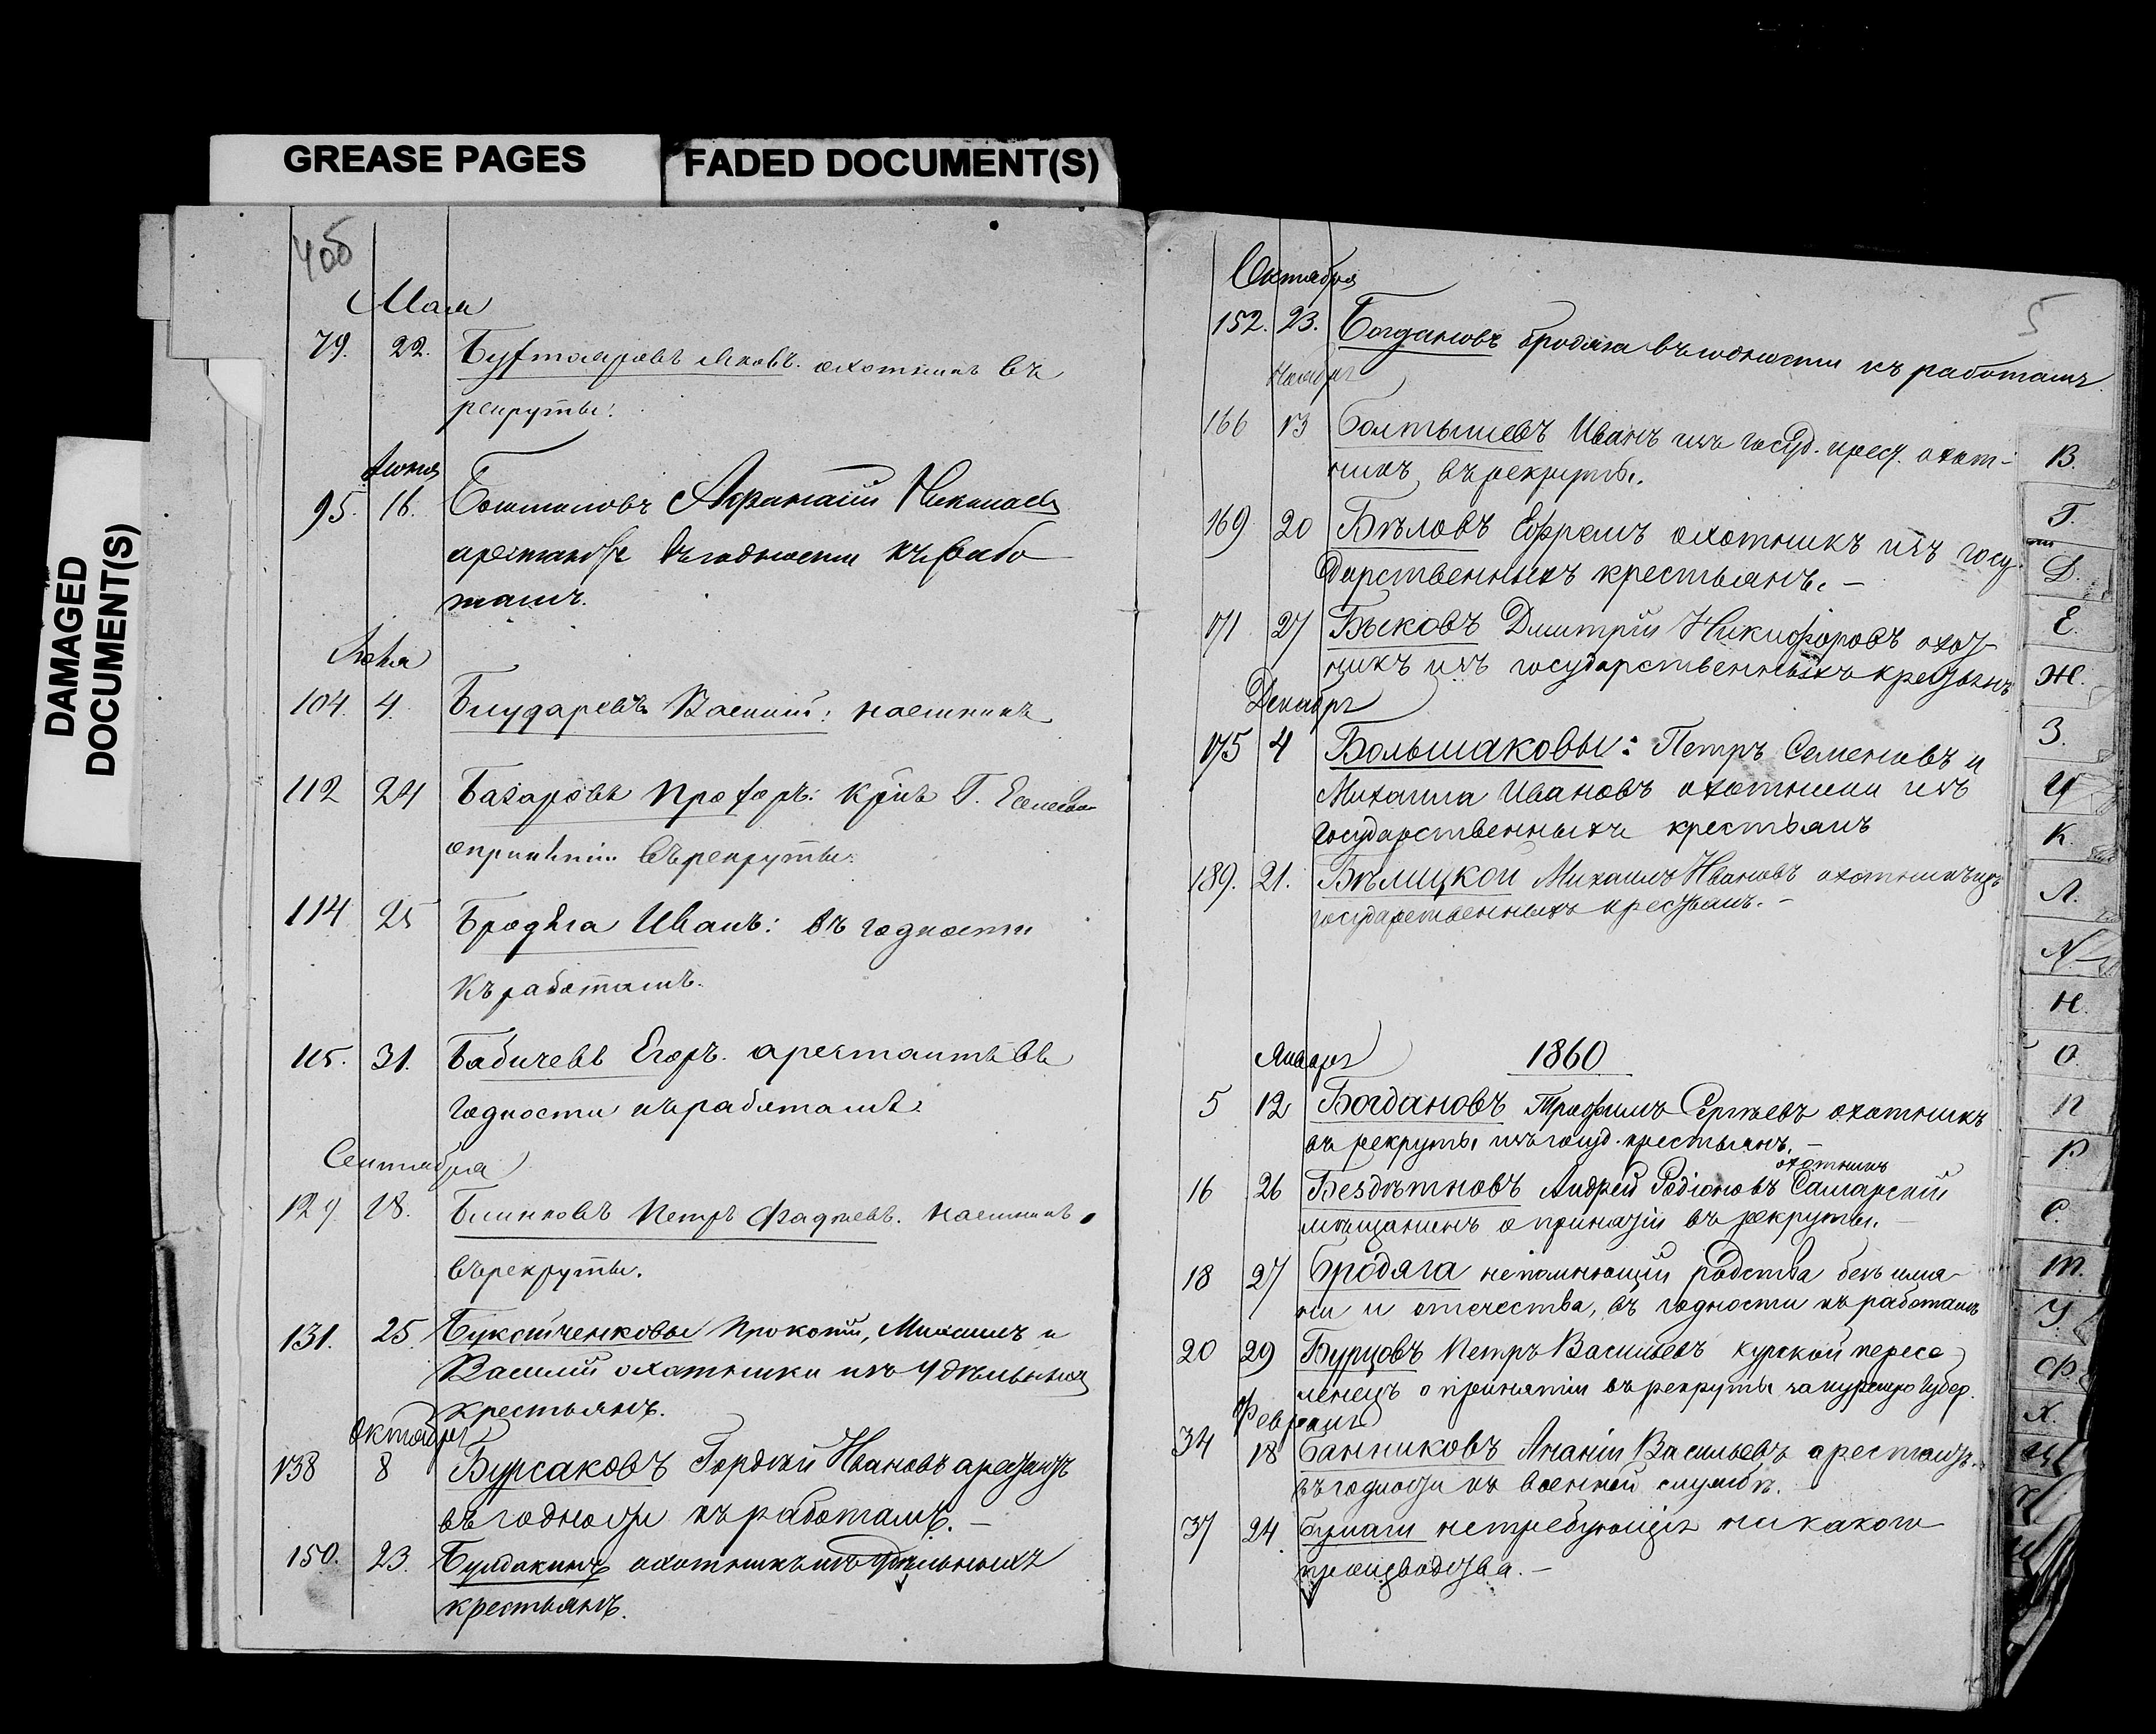 GREASE PAGES
FADED DOCUMENT(S)
DAMAGED
DOCUMENT(S)
4об
Мая
79. 22. Яковъ. охотникъ въ
рекруты.
Іюня
95. 16. Афанасій Николаевъ
арестантъ въ годности къ рабо
тамъ.
Іюля
104. 4. Василій: наемникъ
112 24 Базаровъ Прохоръ: Г.
опринятіи въ рекруты.
114 25 Бродяга Иванъ: въ годности
къ работамъ.
115. 31. Бабичевъ Егоръ. арестантъ въ
годности къ работамъ.
Сентября
129. 18. Блинковъ Петръ Фадѣевъ. наемникъ
въ рекруты.
131. 25. Прокопій, Михаилъ и
Василій охотники изъ удѣльныхъ
крестьянъ.
Октября
138 8 Бурсаковъ Гордѣй Ивановъ арестантъ
въ годности къ работамъ. —
150. 23. охотникъ изъ удѣльныхъ
крестьянъ.
5
Октября
152. 23. Богдановъ бродяга въ годности къ работамъ
Ноября
166 13 Болтышевъ Иванъ изъ госуд. крест. охот-
никъ въ рекруты.
169 20 Бѣловъ Ефремъ охотникъ изъ госу-
дарственныхъ крестьянъ. —
171 27 Быковъ Дмитрій Никифоровъ охот-
никъ изъ государственныхъ крестьянъ
Декабря
175 4 Большаковы: Петръ Семеновъ и
Михаила Ивановъ охотники изъ
государственныхъ крестьянъ
189. 21. Бѣлицкой Михаилъ Ивановъ охотникъ изъ
государственныхъ крестьянъ. —
1860
Января
5 12 Богдановъ Трофимъ Сергѣевъ охотникъ
въ рекруты изъ госуд. крестьянъ. —
охотникъ
16 26 Бездѣтновъ Андрей Родіоновъ Самарскій
мѣщанинъ о принятіи въ рекруты. —
18 27 Бродяга непомнющій родства безъ имя-
ни и отечества, въ годности къ работамъ
20 29 Бурцовъ Петръ Васильевъ курской пересе
ленецъ о принятіи въ рекруты за курскую Губер.
Февраля
34 18 Банниковъ Ананій Васильевъ арестантъ.
въ годности къ военной службѣ.
37 24. Бумаги нетребующія никакого
производства. —
В.
Г.
Д.
Е.
Ж.
З.
И
К.
Л.
М
Н.
О.
П
Р
С.
Т.
У.
Ф.
Х.
Ц